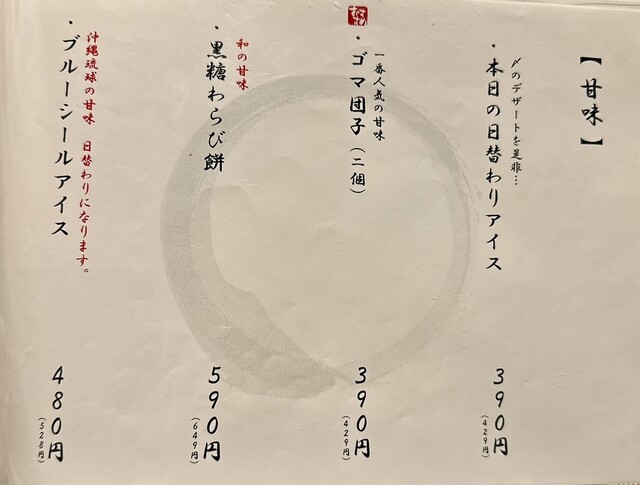 【甘味】
〆のデザートを是非…
・本日の日替わりアイス
390円
(429円)
一番人気の甘味
・ゴマ団子(二個)
390円
(429円)
和の甘味
・黒糖わらび餅
590円
(649円)
沖縄琉球の甘味 日替わりになります。
・ブルーシールアイス
480円
(528円)